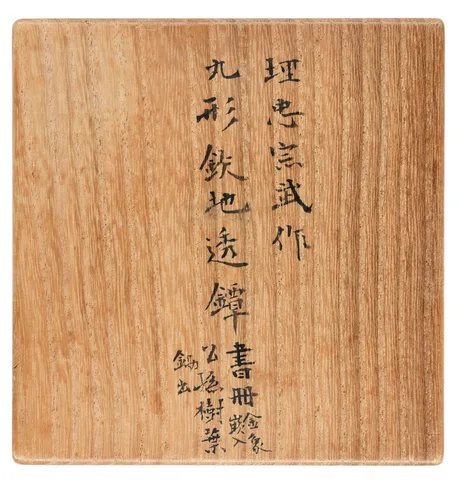 埋忠宗武作
丸形鉄地透鐔
書冊
金象
嵌入
公孫樹葉
鋤出